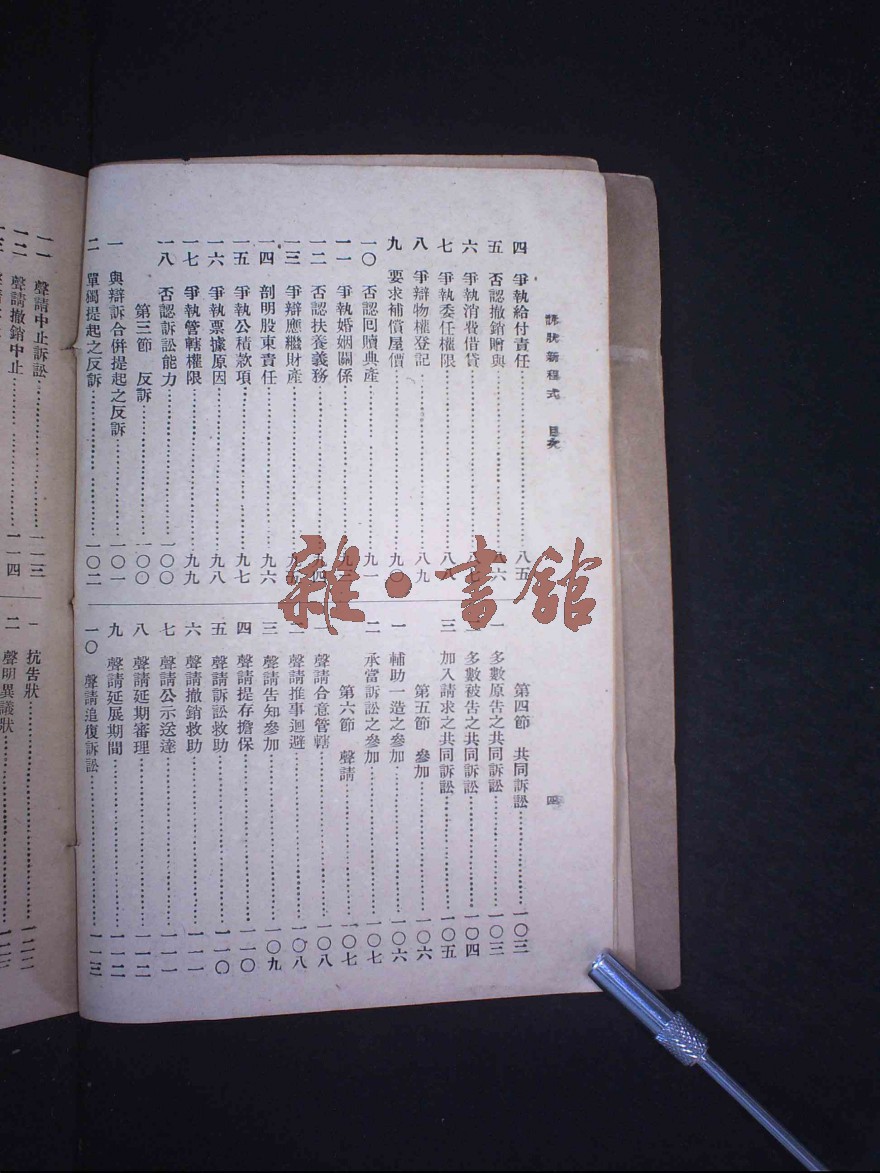 訴狀新程式 目次
四 爭執給付責任 八五
五 否認撤銷贈與 八六
六 爭執消費借貸 八七
七 爭執委任權限 八八
八 爭辯物權登記 八九
九 要求補償屋價 九〇
一〇 否認回贖典產 九一
一一 爭執婚姻關係
一二 否認扶養義務 九四
一三 爭辯應繼財產 九五
一四 剖明股東責任 九六
一五 爭執公積款項 九七
一六 爭執票據原因 九八
一七 爭執管轄權限 九九
一八 否認訴訟能力 一〇〇
第三節 反訴 一〇〇
一 與辯訴合併提起之反訴 一〇一
二 單獨提起之反訴 一〇二
第四節 共同訴訟 一〇三
一 多數原告之共同訴訟 一〇三
二 多數被告之共同訴訟 一〇四
三 加入請求之共同訴訟 一〇五
第五節 參加 一〇六
一 輔助一造之參加 一〇六
二 承當訴訟之參加 一〇七
第六節 聲請 一〇七
一 聲請合意管轄 一〇八
二 聲請推事迴避 一〇八
三 聲請告知參加 一〇九
四 聲請提存擔保 一一〇
五 聲請訴訟救助 一一〇
六 聲請撤銷救助 一一一
七 聲請公示送達 一一一
八 聲請延期審理 一一二
九 聲請延展期間 一一二
一〇 聲請追復訴訟 一一三
四
一一 聲請中止訴訟 一一三
一二 聲請撤銷中止 一一四
一三
一 抗告狀 一二二
二 聲明異議狀
雜·書館